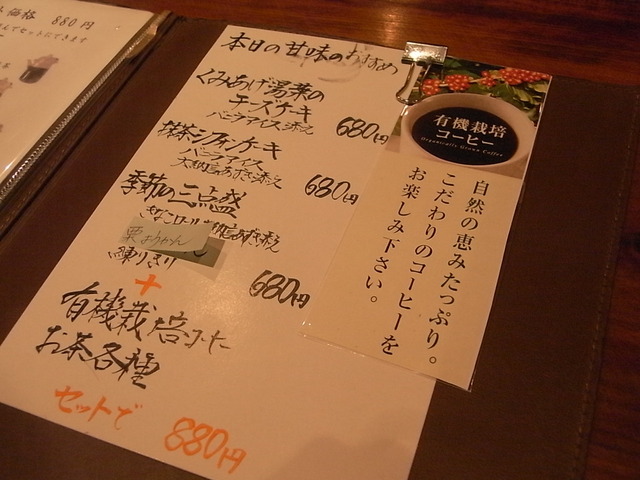 価格 880円
セットにできます
本日の甘味のおすすめ
くみあげ湯葉の
チーズケーキ
バニラアイス添え 680円
抹茶シフォンケーキ
バニラアイス
大納言あずき添え 680円
季節の三点盛
きなこロール
栗ようかん
練りきり
680円
+
有機栽培コーヒー
お茶各種
セットで 880円
有機栽培
コーヒー
Organically Grown Coffee
自然の恵みたっぷり。
こだわりのコーヒーを
お楽しみ下さい。